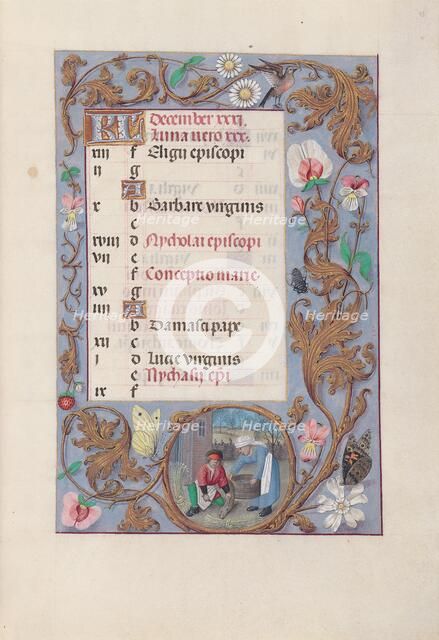 KL December xxxi
Luna vero xxx.
xiii f Eligii episcopi
ii g
A
x b Barbare virginis
c
xviii d Nycholai episcopi
vii e
f Conceptio marie
xv g
iiii A
b Damasci pape
xii c
i d Lucie virginis
e Nychasij epi
ix f
Heritage
Heritage
Heritage
Heritage
Heritage
Heritage